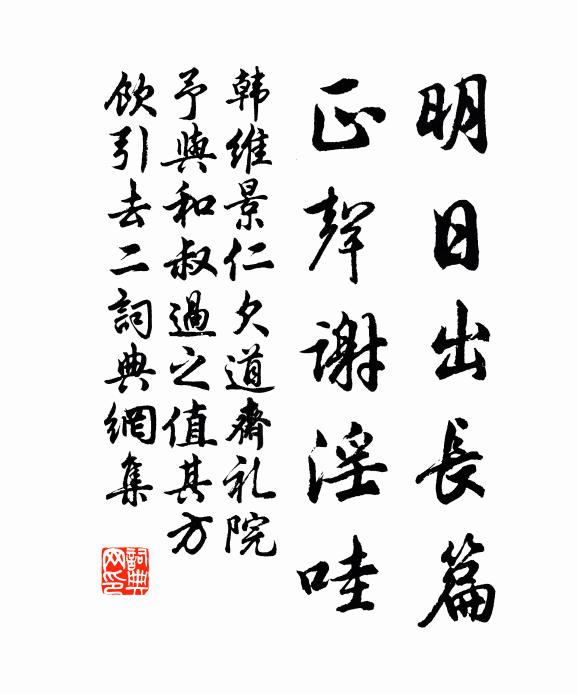 明日出长篇
正聲谢淫哇
韩維景仁久道齋礼院
予與和叔過之值其方
飲引去二詞典網集
詞典网